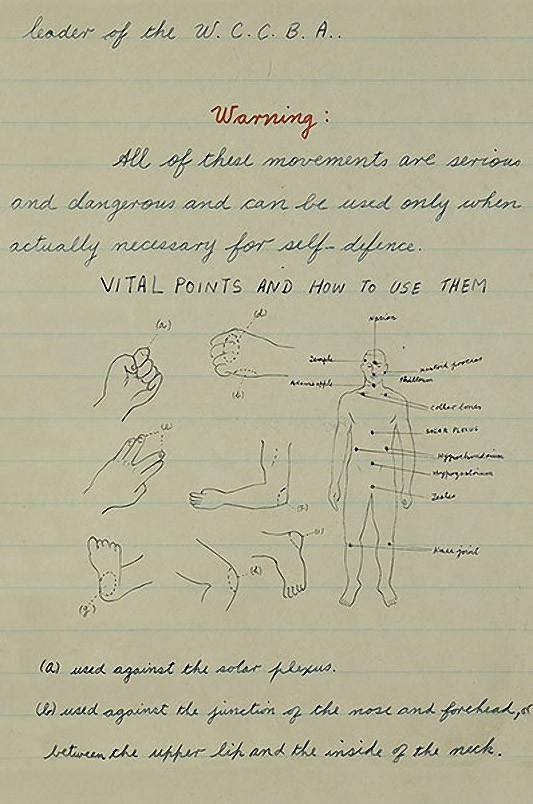 leader of the W. C. C. B. A..
Warning:
All of these movements are serious
and dangerous and can be used only when
actually necessary for self-defence.
VITAL POINTS AND HOW TO USE THEM
(a)
(d)
Nasion
Temple
Mastoid process
Adams apple
Philtrum
(b)
Collar bones
SOLAR PLEXUS
(e)
Hypochondrium
Hypogastrium
Testes
Knee joint
(g)
(a) used against the solar plexus.
(b) used against the junction of the nose and forehead, or
between the upper lip and the inside of the neck.